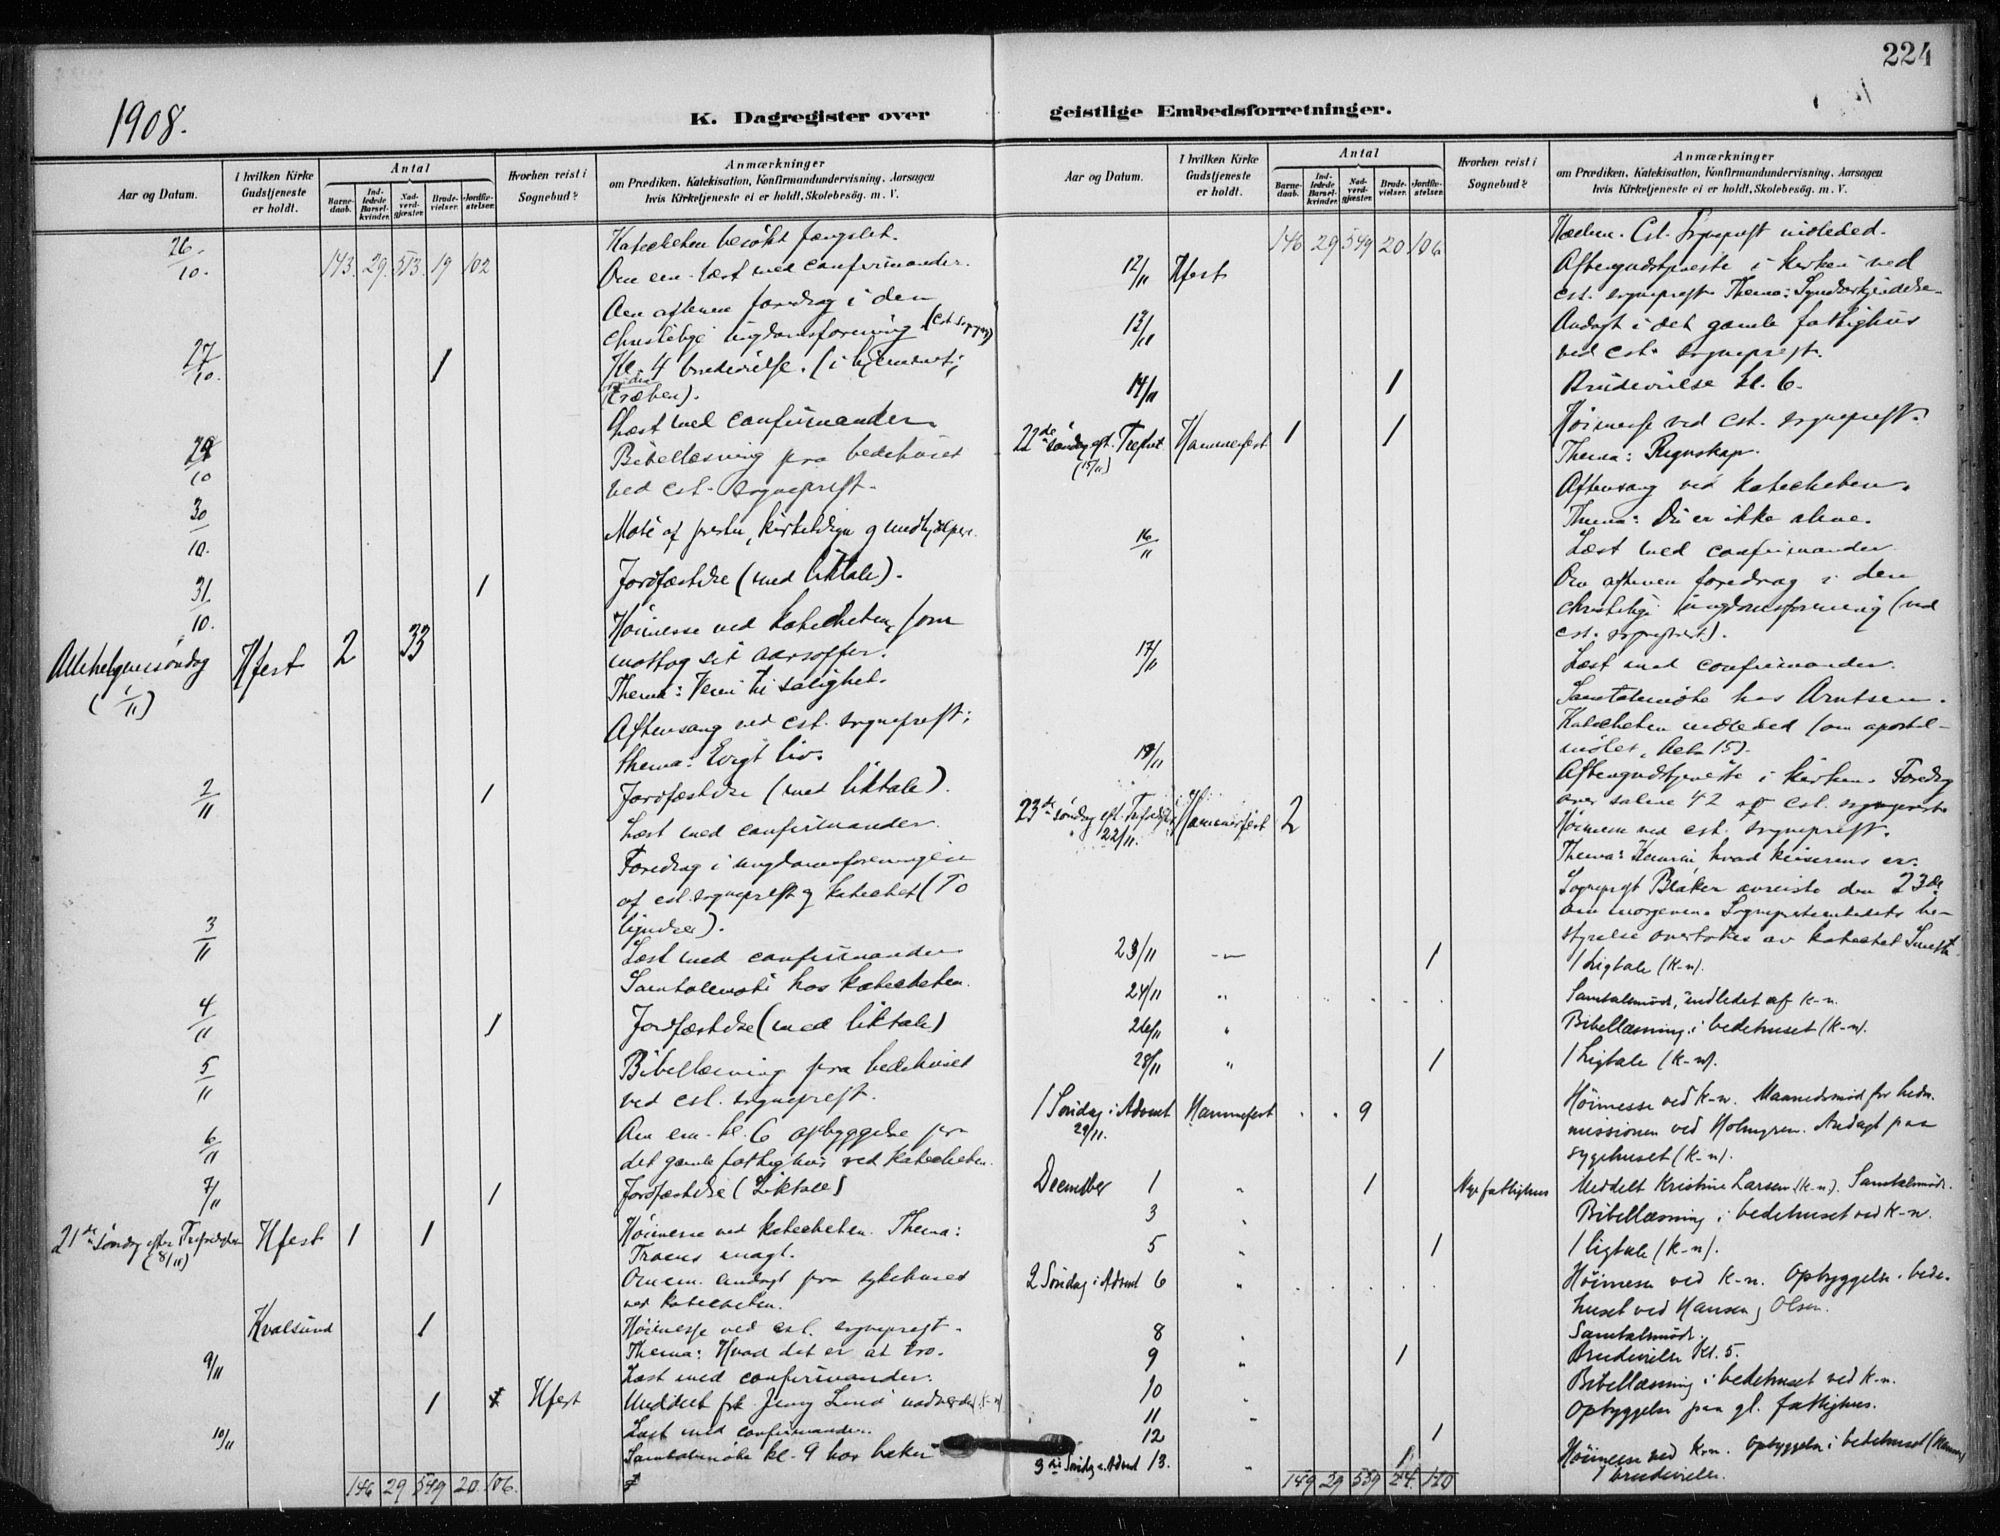 224
1908.
K. Dagregister over geistlige Embedsforretninger.
Aar og Datum.
I hvilken Kirke Gudstjeneste er holdt.
Antal
Barnedaab.
Indledede Barselkvinder.
Nadverdgjæster.
Brudevielser.
Jordfæstelser.
Hvorhen reist i Sognebud?
Anmærkninger
om Prædiken, Katekisation, Konfirmandundervisning, Aarsagen
hvis Kirketjeneste ei er holdt, Skolebesøg. m. V.
26/10. 143. 29. 513. 19 102 Katecheten besøkt fængslet.
Om em. læst med confirmander.
Om aftenen foredrag i den
christelige ungdomsforening (cst. sognepr)
27/10. 1 Kl. 4 brudevielse. (i hjemmet;
Læst med confirmander.
29/10 Bibellæsning paa bedehuset
ved cst. sogneprest.
30/10. Møte af prester, kirketjener og medhjælpere.
31/10. 1 Jordfæstelse (med liktale).
Allehelgensøndag (1/11) Hfest 2 33 Høimesse ved katecheten, som
mottog sit aarsoffer.
Thema: Veien til salighet.
Aftensang ved cst. sogneprest;
thema: Evigt liv.
2/11 1 Jordfæstelse (med liktale).
Læst med confirmander.
Foredrag i ungdomsforeningen
af cst. sogneprest og katechet (To
3/11 Læst med confirmander
Samtalemøte hos katecheten.
4/11 1 Jordfæstelse (med liktale)
5/11 Bibellæsning paa bedehuset
ved cst. sogneprest.
6/11 Om em. kl. 6 opbyggelse paa
det gamle fattighus ved katecheten.
7/11 1 Jordfæstelse (Liktale)
21de søndag efter Trefoldighet (8/11) Hfest 1 1 Høimesse ved katecheten. Thema:
Troens magt.
Om em. andagt paa sykehuset
ved katecheten.
Kvalsund 1 Høimesse ved cst. sogneprest.
Thema: Hvad det er at tro.
9/11 Læst med confirmander.
1 Hfest Meddelt frk. Jenny Lund nadverden (K-n)
10/11 Læst med confirmander.
Samtalemøte kl. 9 hos baker
146 29 549 20. 106.
Aar og Datum.
I hvilken Kirke Gudstjeneste er holdt.
Antal
Barnedaab.
Indledede Barselkvinder.
Nadverdgjæster.
Brudevielser.
Jordfæstelser.
Hvorhen reist i Sognebud?
Anmærkninger
om Prædiken, Katekisation, Konfirmandundervisning, Aarsagen
hvis Kirketjeneste ei er holdt, Skolebesøg. m. V.
146 29 549 20 106 Cst. sogneprest indleded.
12/11 Hfest Aftengudstjeneste i kirken ved
cst. sogneprest. Thema: Syndserkjendelse.
13/11 Andagt i det gamle fattighus
ved cst. sogneprest.
14/11 1 Brudevielse kl. 6.
22de søndag eft. Trefold. (15/11) Hammerfest 1 1 Høimesse ved cst. sogneprest.
Thema: Regnskap.
Aftensang ved katecheten.
Thema: Du er ikke alene.
16/11 Læst med confirmander
Om aftenen foredrag i den
christelige ungdomsforening (ved
cst. sogneprest).
17/11 Læst med confirmander.
Samtalemøte hos Arntsen.
Katecheten indleded (om apostel-
møtet, Acta 15).
19/11 Aftengudstjeneste i kirken. Foredrag
over salme 42 af cst. sogneprest
23de søndag eft. Trefoldighet 22/11. Hammerfest 2 Høimesse ved cst. sogneprest.
Thema: Keiseren hvad keiserens er.
Sogneprest Blaker avreiste den 23de
om morgenen. Sogneprestembedets be-
styrelse overtokes av katechet
23/11 1 1 Ligtale (K-n).
24/11 Samtalemøde, indledet af K-n.
26/11 Bibellæsning i bedehuset (K-n).
28/11 1 1 Ligtale (K-n).
1 Søndag i Advent 29/11. Hammerfest 9 Høimesse ved K-n. Maanedsmøde for hedn.
missionen ved Holmgren. Andagt paa
sygehuset (K-n).
December 1 1 Nye fattighus Meddelt Kristine Larsen (K-n). Samtalemøde.
3 Bibellæsning i bedehuset ved K-n.
5 1 1 ligtale (K-n).
2 Søndag i Advent 6 Høimesse ved K-n. Opbyggelse i bede-
huset ved Hansen, Olsen.
8 Samtalemøde.
9 1 Brudevielse Kl. 5.
10 Bibellæsning i bedehuset ved K-n.
11 Opbyggelse paa gl. fattighus.
12 1
3die Søndag i Advent 13. 1 Høimesse ved K-n. Opbyggelse i bedehuset
1 brudevielse.
149 29 559 24. 110